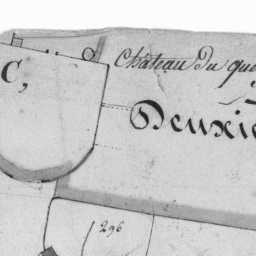 Château Du que
C,
Deuxie
296